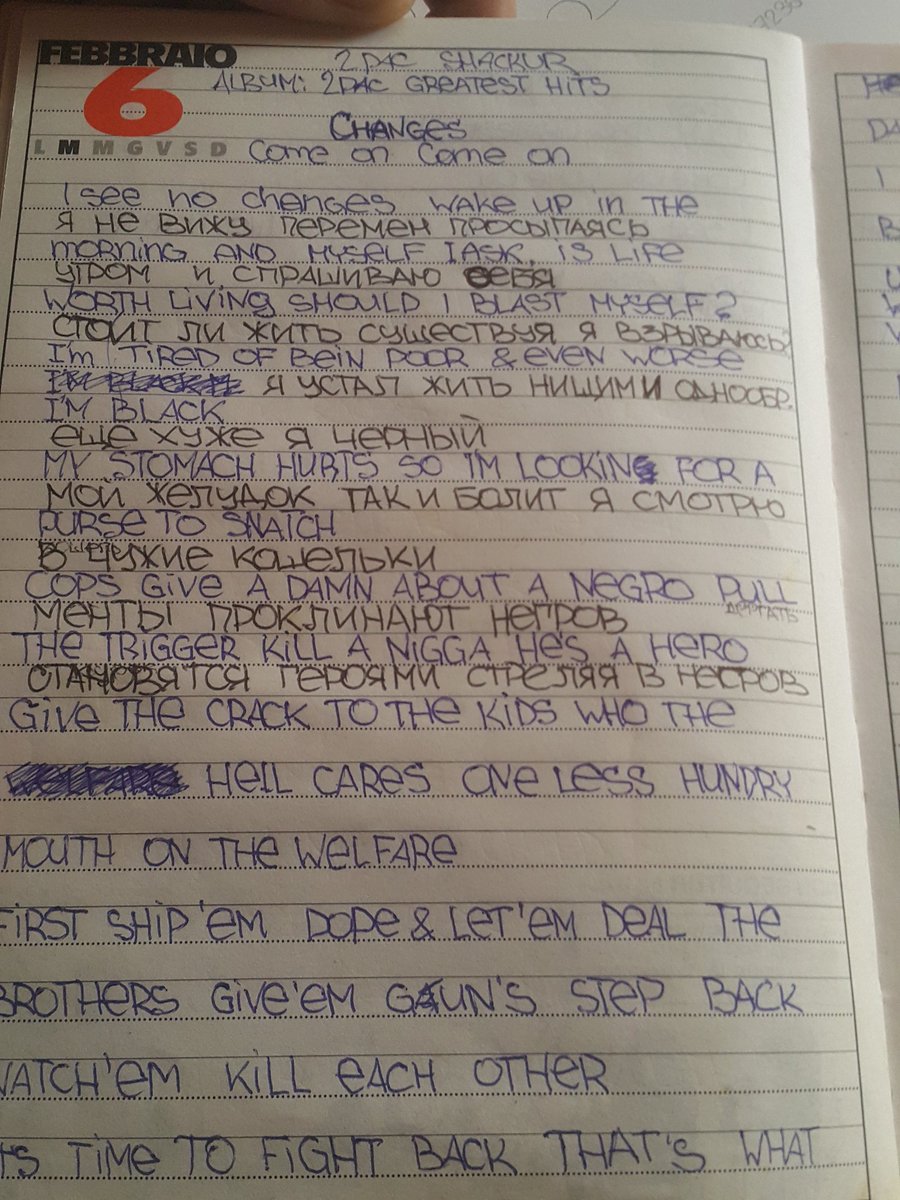 7236
FEBBRAIO
6
L M M G V S D
2PAC SHACKUR
ALBUM: 2PAC GREATEST HITS
CHANGES
Come on Come on
I see no changes wake up in the
Я НЕ ВИЖУ ПЕРЕМЕН ПРОСЫПАЯСЬ
morning AND MYSELF I ASK. IS LIFE
УТРОМ И СПРАШИВАЮ СЕБЯ
WORTH LIVING SHOULD I BLAST MYSELF?
СТОИТ ЛИ ЖИТЬ СУЩЕСТВУЯ Я ВЗРЫВАЮСЬ?
I'm TIRED OF BEIN POOR & EVEN WORSE
Я УСТАЛ ЖИТЬ НИЩИМ И ОДНООБР.
I'M BLACK
ЕЩЕ ХУЖЕ Я ЧЕРНЫЙ
MY STOMACH HURTS SO I'M LOOKING FOR A
МОЙ ЖЕЛУДОК ТАК И БОЛИТ Я СМОТРЮ
PURSE TO SNATCH
В ЧУЖИЕ КОШЕЛЬКИ
COPS GIVE A DAMN ABOUT A NEGRO PULL
ДЕРГАТЬ
МЕНТЫ ПРОКЛИНАЮТ НЕГРОВ
THE TRIGGER KILL A NIGGA HE'S A HERO
СТАНОВЯТСЯ ГЕРОЯМИ СТРЕЛЯЯ В НЕГРОВ
GIVE THE CRACK TO THE KIDS WHO THE
HELL CARES ONE LESS HUNDRY
MOUTH ON THE WELFARE
FIRST SHIP 'EM DOPE & LET 'EM DEAL THE
BROTHERS GIVE 'EM GAUN'S STEP BACK
WATCH 'EM KILL EACH OTHER
TS TIME TO FIGHT BACK THAT'S WHAT